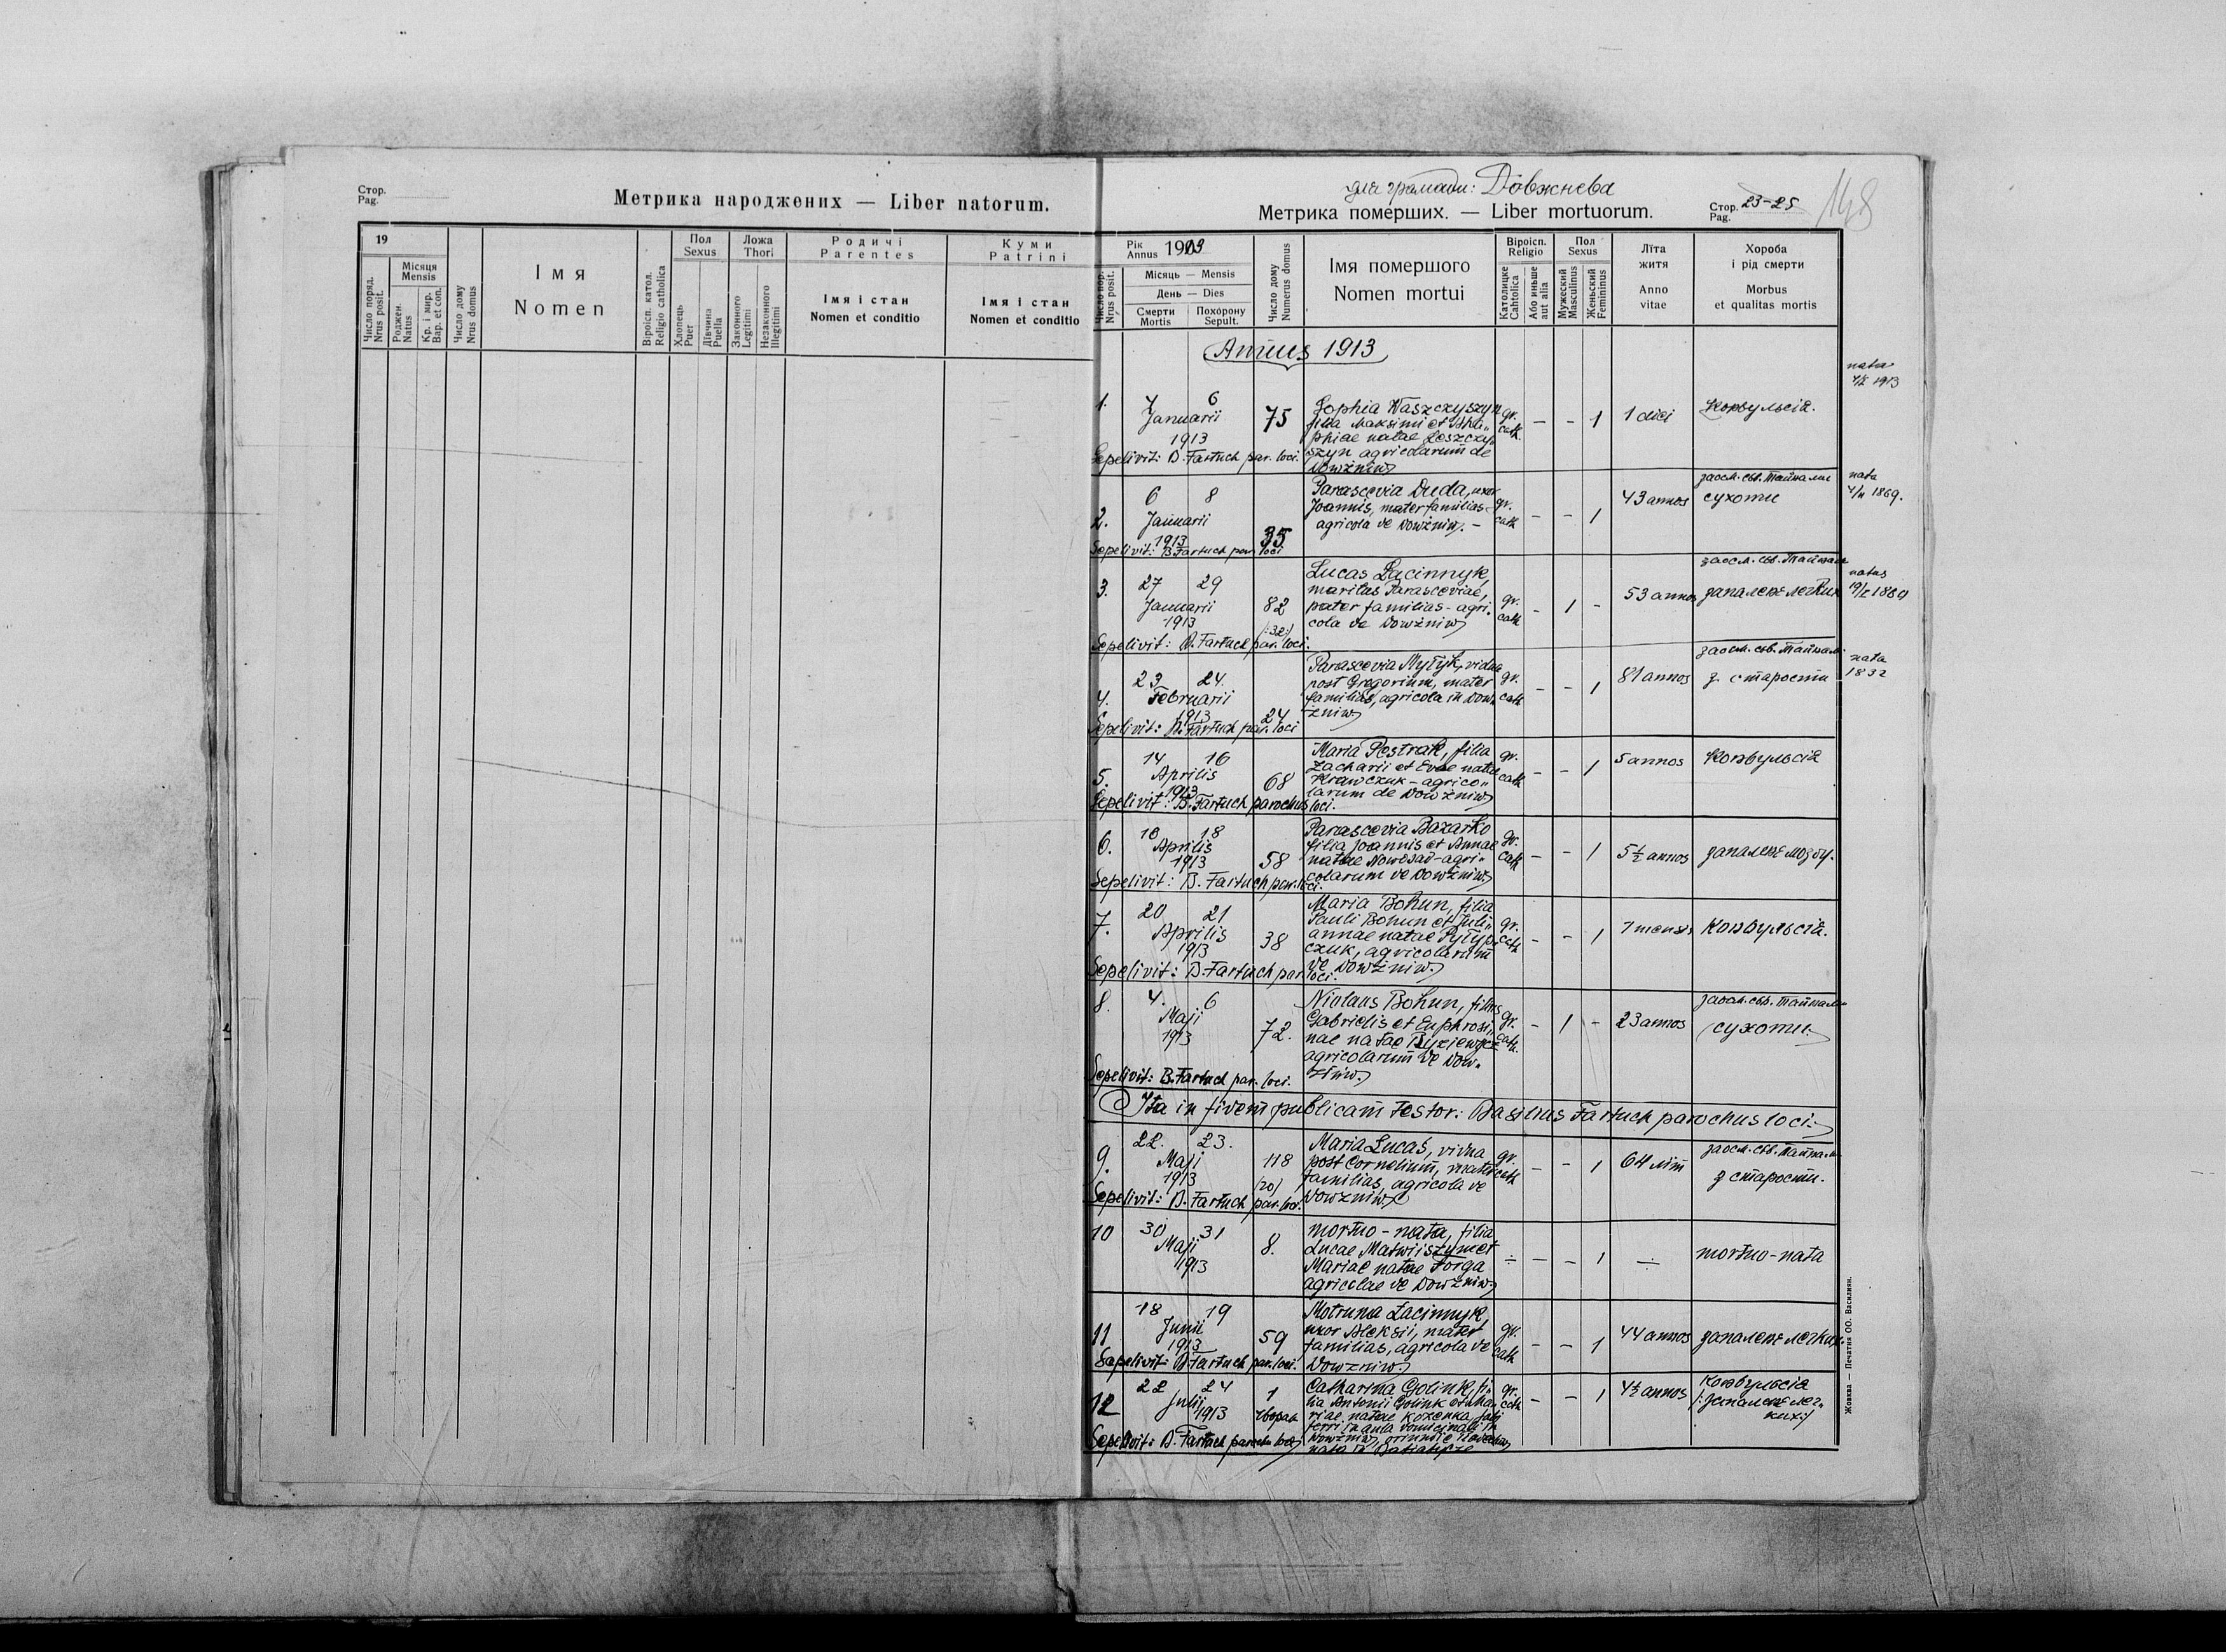 Стор.
Pag.
Метрика народжених — Liber natorum.
19
Місяця
Mensis
Число поряд.
Nrus posit.
Роджен.
Natus
Кр. і мир.
Bap. et con.
Число дому
Nrus domus
Імя
Nomen
Віроісп. катол.
Religio catholica
Пол
Sexus
Хлопець
Puer
Дівчина
Puella
Ложа
Thori
Законного
Legitimi
Незаконного
Illegitimi
Родичі
Parentes
Імя і стан
Nomen et conditio
Куми
Patrini
Імя і стан
Nomen et conditio
для громади: Довжнева
Метрика померших. — Liber mortuorum.
Стор.
Pag.
23-25
148
Число пор.
Nrus posit.
Рік
Annus
1913
Місяць — Mensis
День — Dies
Смерти
Mortis
Похорону
Sepult.
Число дому
Numerus domus
Імя помершого
Nomen mortui
Віроісп.
Religio
Католицке
Cahtolica
Або иньше
aut alia
Пол
Sexus
Мужеский
Masculinus
Женьский
Femininus
Лїта
житя
Anno
vitae
Хороба
і рід смерти
Morbus
et qualitas mortis
Annus 1913
1. 6
Januarii
1913
Sepelivit: B. Fartuch par. loci.
75
Sophia Waszczyszyn
filia Maksimi et
phiae natae Leszczy„
szyn agricolarum de
Dowżniw
gr.
cath.
— - 1
1 diei
Конвульсія.
nata
1913
2. 6 8
Januarii
1913
Sepelivit: B. Fartuch par. loci
35
Parascevia Duda, uxor
Joannis, mater familias
agricola de Dowżniw. -
gr.
cath
- - 1
43 annos
заосм. св. Тайнами
сухоти
nata
4/11 1869.
3. 27 29
Januarii
1913
Sepelivit: B. Fartuch par. loci.
82
/:32:/
Lucas Łacinnyk,
maritus Parasceviae,
pater familias - agri„
cola de Dowżniw
gr.
cath
- 1 -
53 annos
заосм. св. Тайнами
запаленє легких
natus
1860
4. 23 24.
Februarii
1913
Sepelivit: B. Fartuch par. loci
24
Parascevia Mytyk, vidua
post Gregorium, mater
familias, agricola in Dow„
żniw
gr.
cath
- - 1
81 annos
заосм. св. Тайнами
з старости
nata
1832
5. 14 16
Aprilis
1913
Sepelivit: B. Fartuch parochus loci.
68
Maria Kostrak, filia
Zacharii et Evae natae
Krawczuk - agrico„
larum de Dowżniw
gr.
cath
- - 1
5 annos
Конвульсія
6. 16 18
Aprilis
1913
Sepelivit: B. Fartuch par. loci.
58
Parascevia Bazarko
filia Joannis et Annae
natae Nowosad - agri„
colarum de Dowżniw
gr.
cath
- - 1
5½ annos
запаленє мозгу.
7. 20 21
Aprilis
1913
Sepelivit: B. Fartuch par. loci.
38
Maria Bohun, filia
Pauli Bohun et Juli„
annae natae Pyłyp„
czuk, agricolarum
de Dowżniw.
gr.
cath
- - 1
7 mensis
Конвульсія.
8. 4. 6
Maji
1913
Sepelivit: B. Fartuch par. loci.
72.
Niolaus Bohun, filius
Gabrielis et Euphrosi„
nae natae
agricolarum de Dow„
żniw.
gr.
cath.
- 1 -
23 annos
заосм. св. тайнами
сухоти.
Ita in fidem publicam testor: Basilius Fartuch parochus loci.
9. 22. 23.
Maji
1913
Sepelivit: B. Fartuch par. loci.
118
/20/
Maria Lucas, vidua
post Cornelium, mater
familias, agricola de
Dowżniw
gr.
cath
- - 1
64 літ
заосм. св. Тайнами
з старости.
10 30 31
Maji
1913
8.
mortuo - nata, filia
Lucae Matwiiszyn et
Mariae natae Forga
agricolae de Dowżniw
÷ — - 1
÷
mortuo - nata
11 18 19
Junii
1913
Sepelivit: B. Fartuch par. loci.
59
Motruna Łacinnyk,
uxor Aleksii, mater
familias, agricola de
Dowżniw.
gr.
cath
- - 1
44 annos
запаленє легких.
12 22 24
Julii
1913
Sepelivit: B. Fartuch loci
1
Catharina Golink, fi„
lia Antonii Golink et Ma„
riae natae Kozenka
gr.
cath
- - 1
4½ annos
Конвульсія
/: запаленє лег„
ких:/
Жовква — Печатня ОО. Василиян.